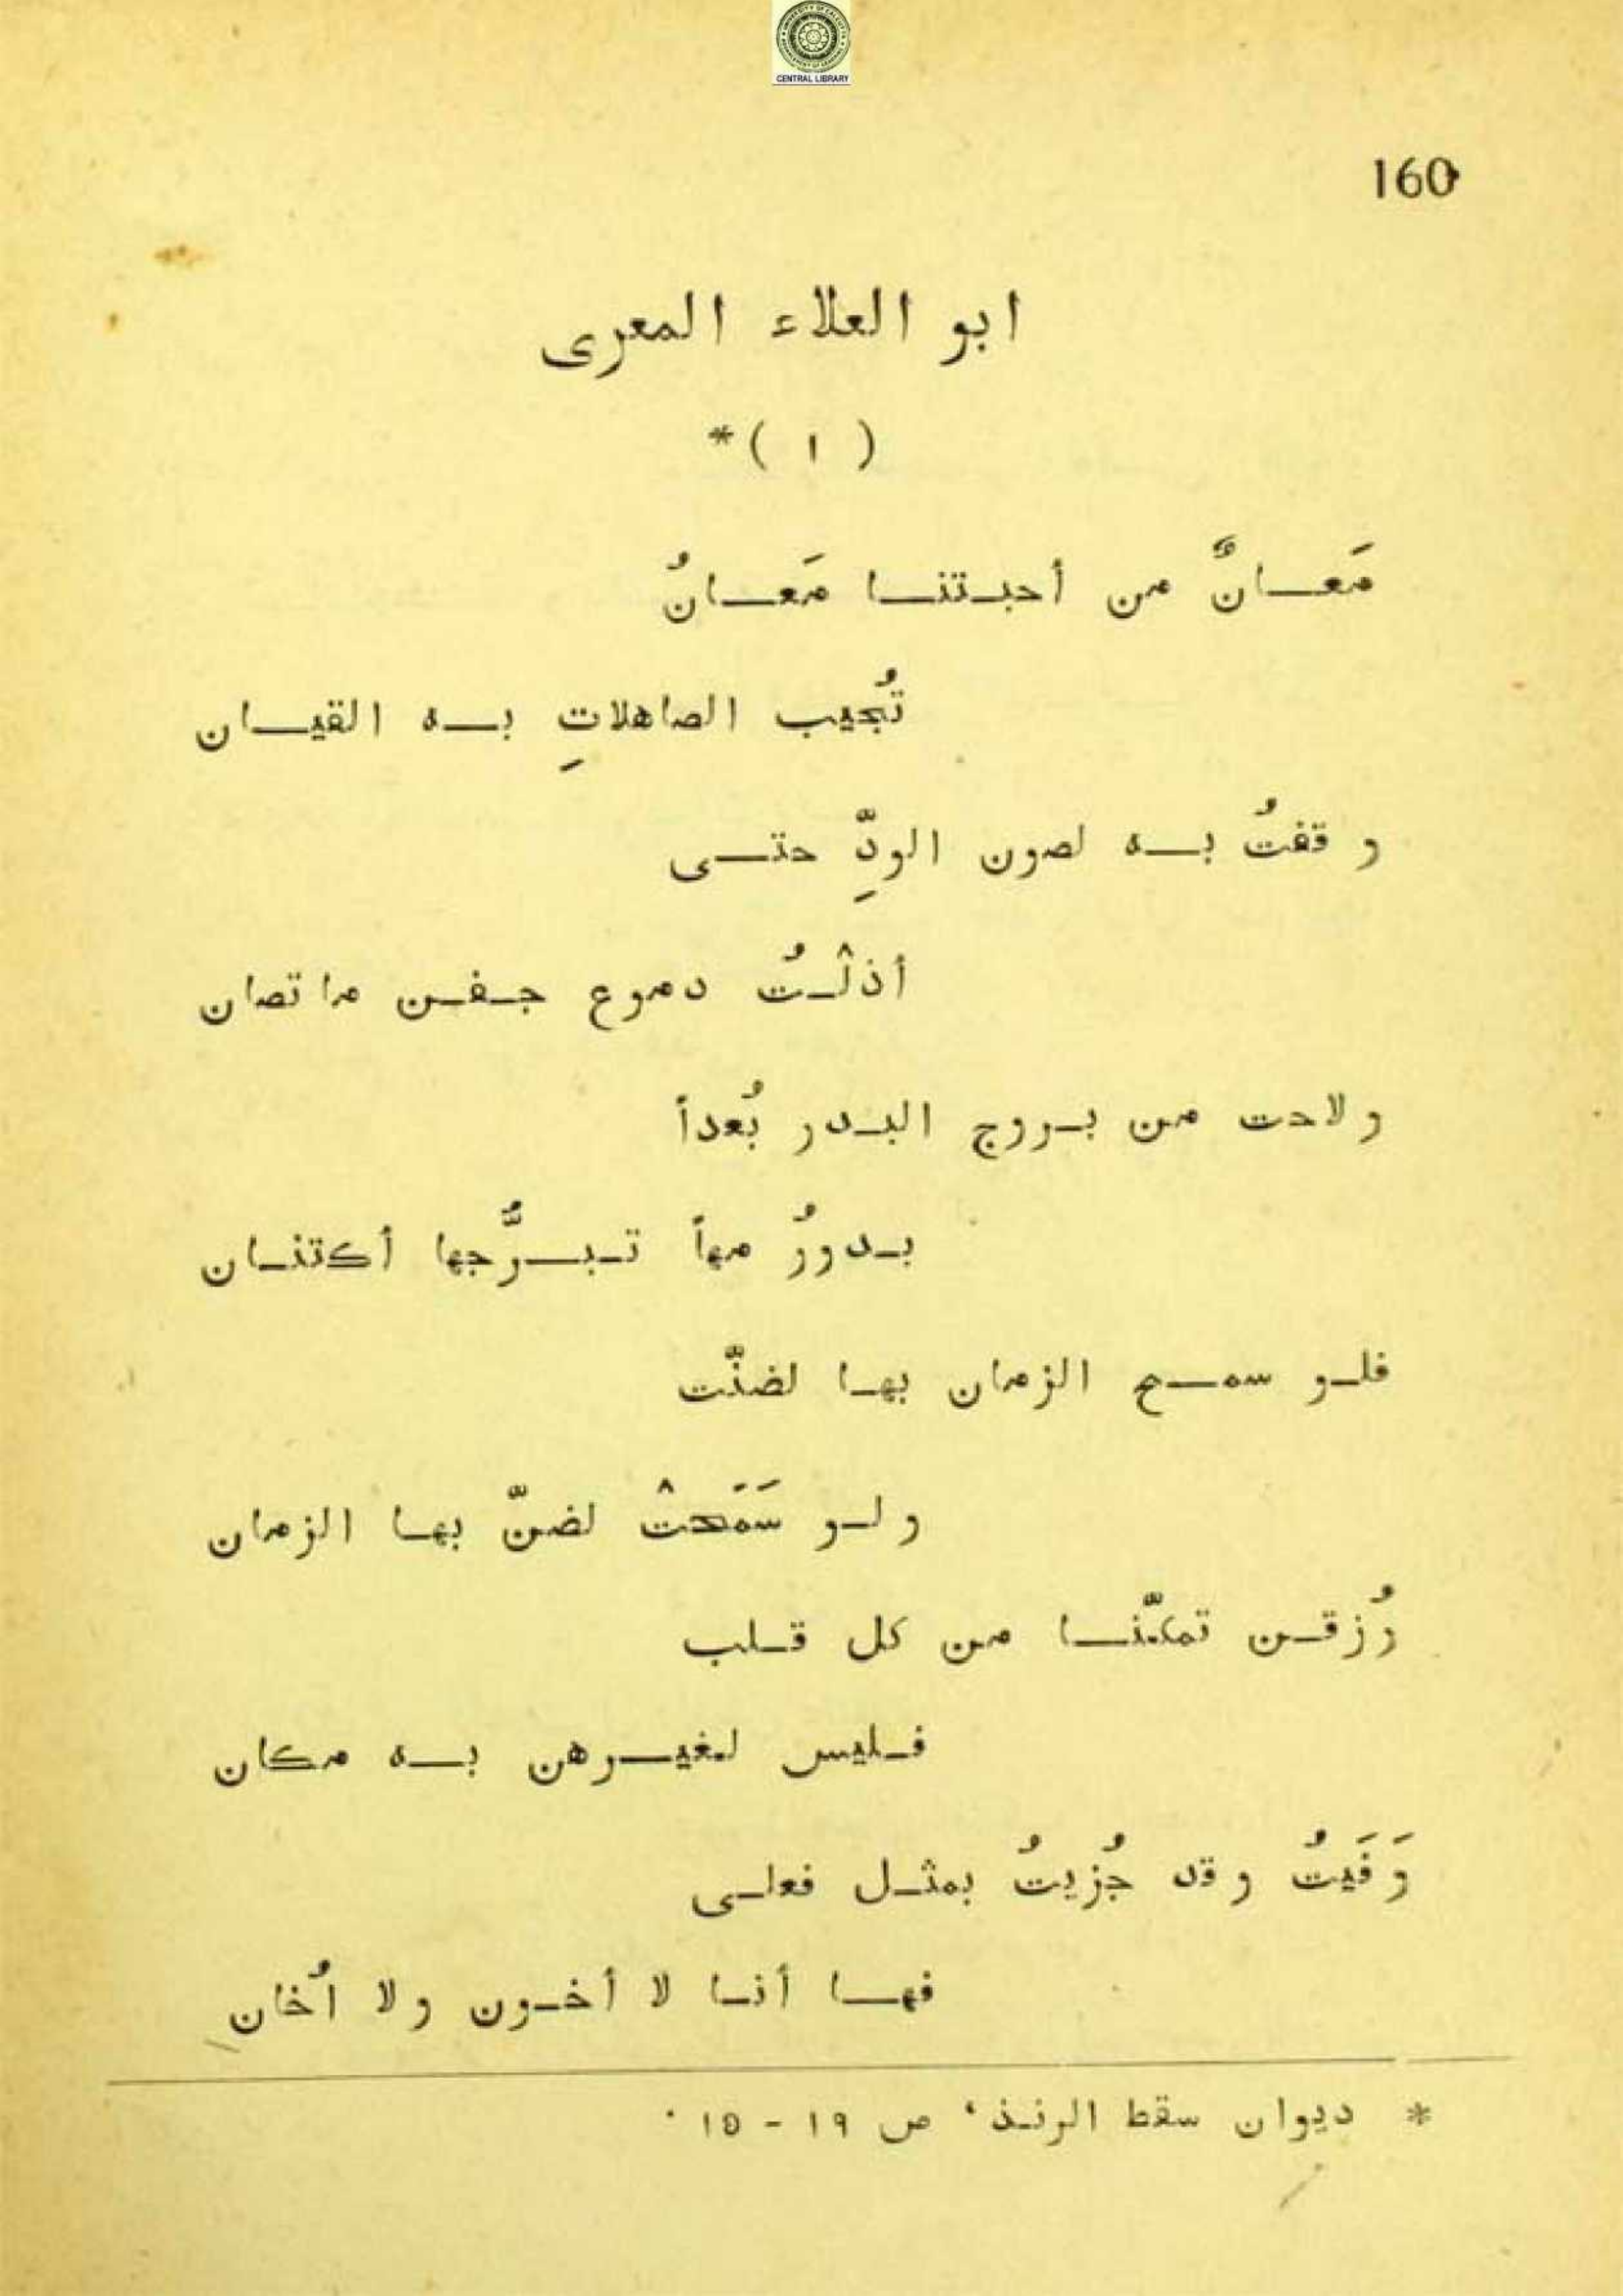 CENTRAL LIBRARY
160
ابو العلاء المعرى
( ١ )*
مَعانٌ من أحبتنا مَعانُ
تُجيب الصاهلاتِ به القيان
وقفتُ به لصون الودِّ حتى
أذلْتُ دموع جفن ما تصان
ولاحت من بروج البدر بُعداً
بدورُ مهاً تبرُّجها أكتنان
فلو سمح الزمان بها لضنّت
ولو سَمَحتْ لضنّ بها الزمان
رُزقن تمكنّا من كل قلب
فليس لغيرهن به مكان
وَفَيتُ وقد جُزيتُ بمثل فعلى
فها أنا لا أخون ولا اُخان
* ديوان سقط الرنذ، ص ١٩ - ١٥ .